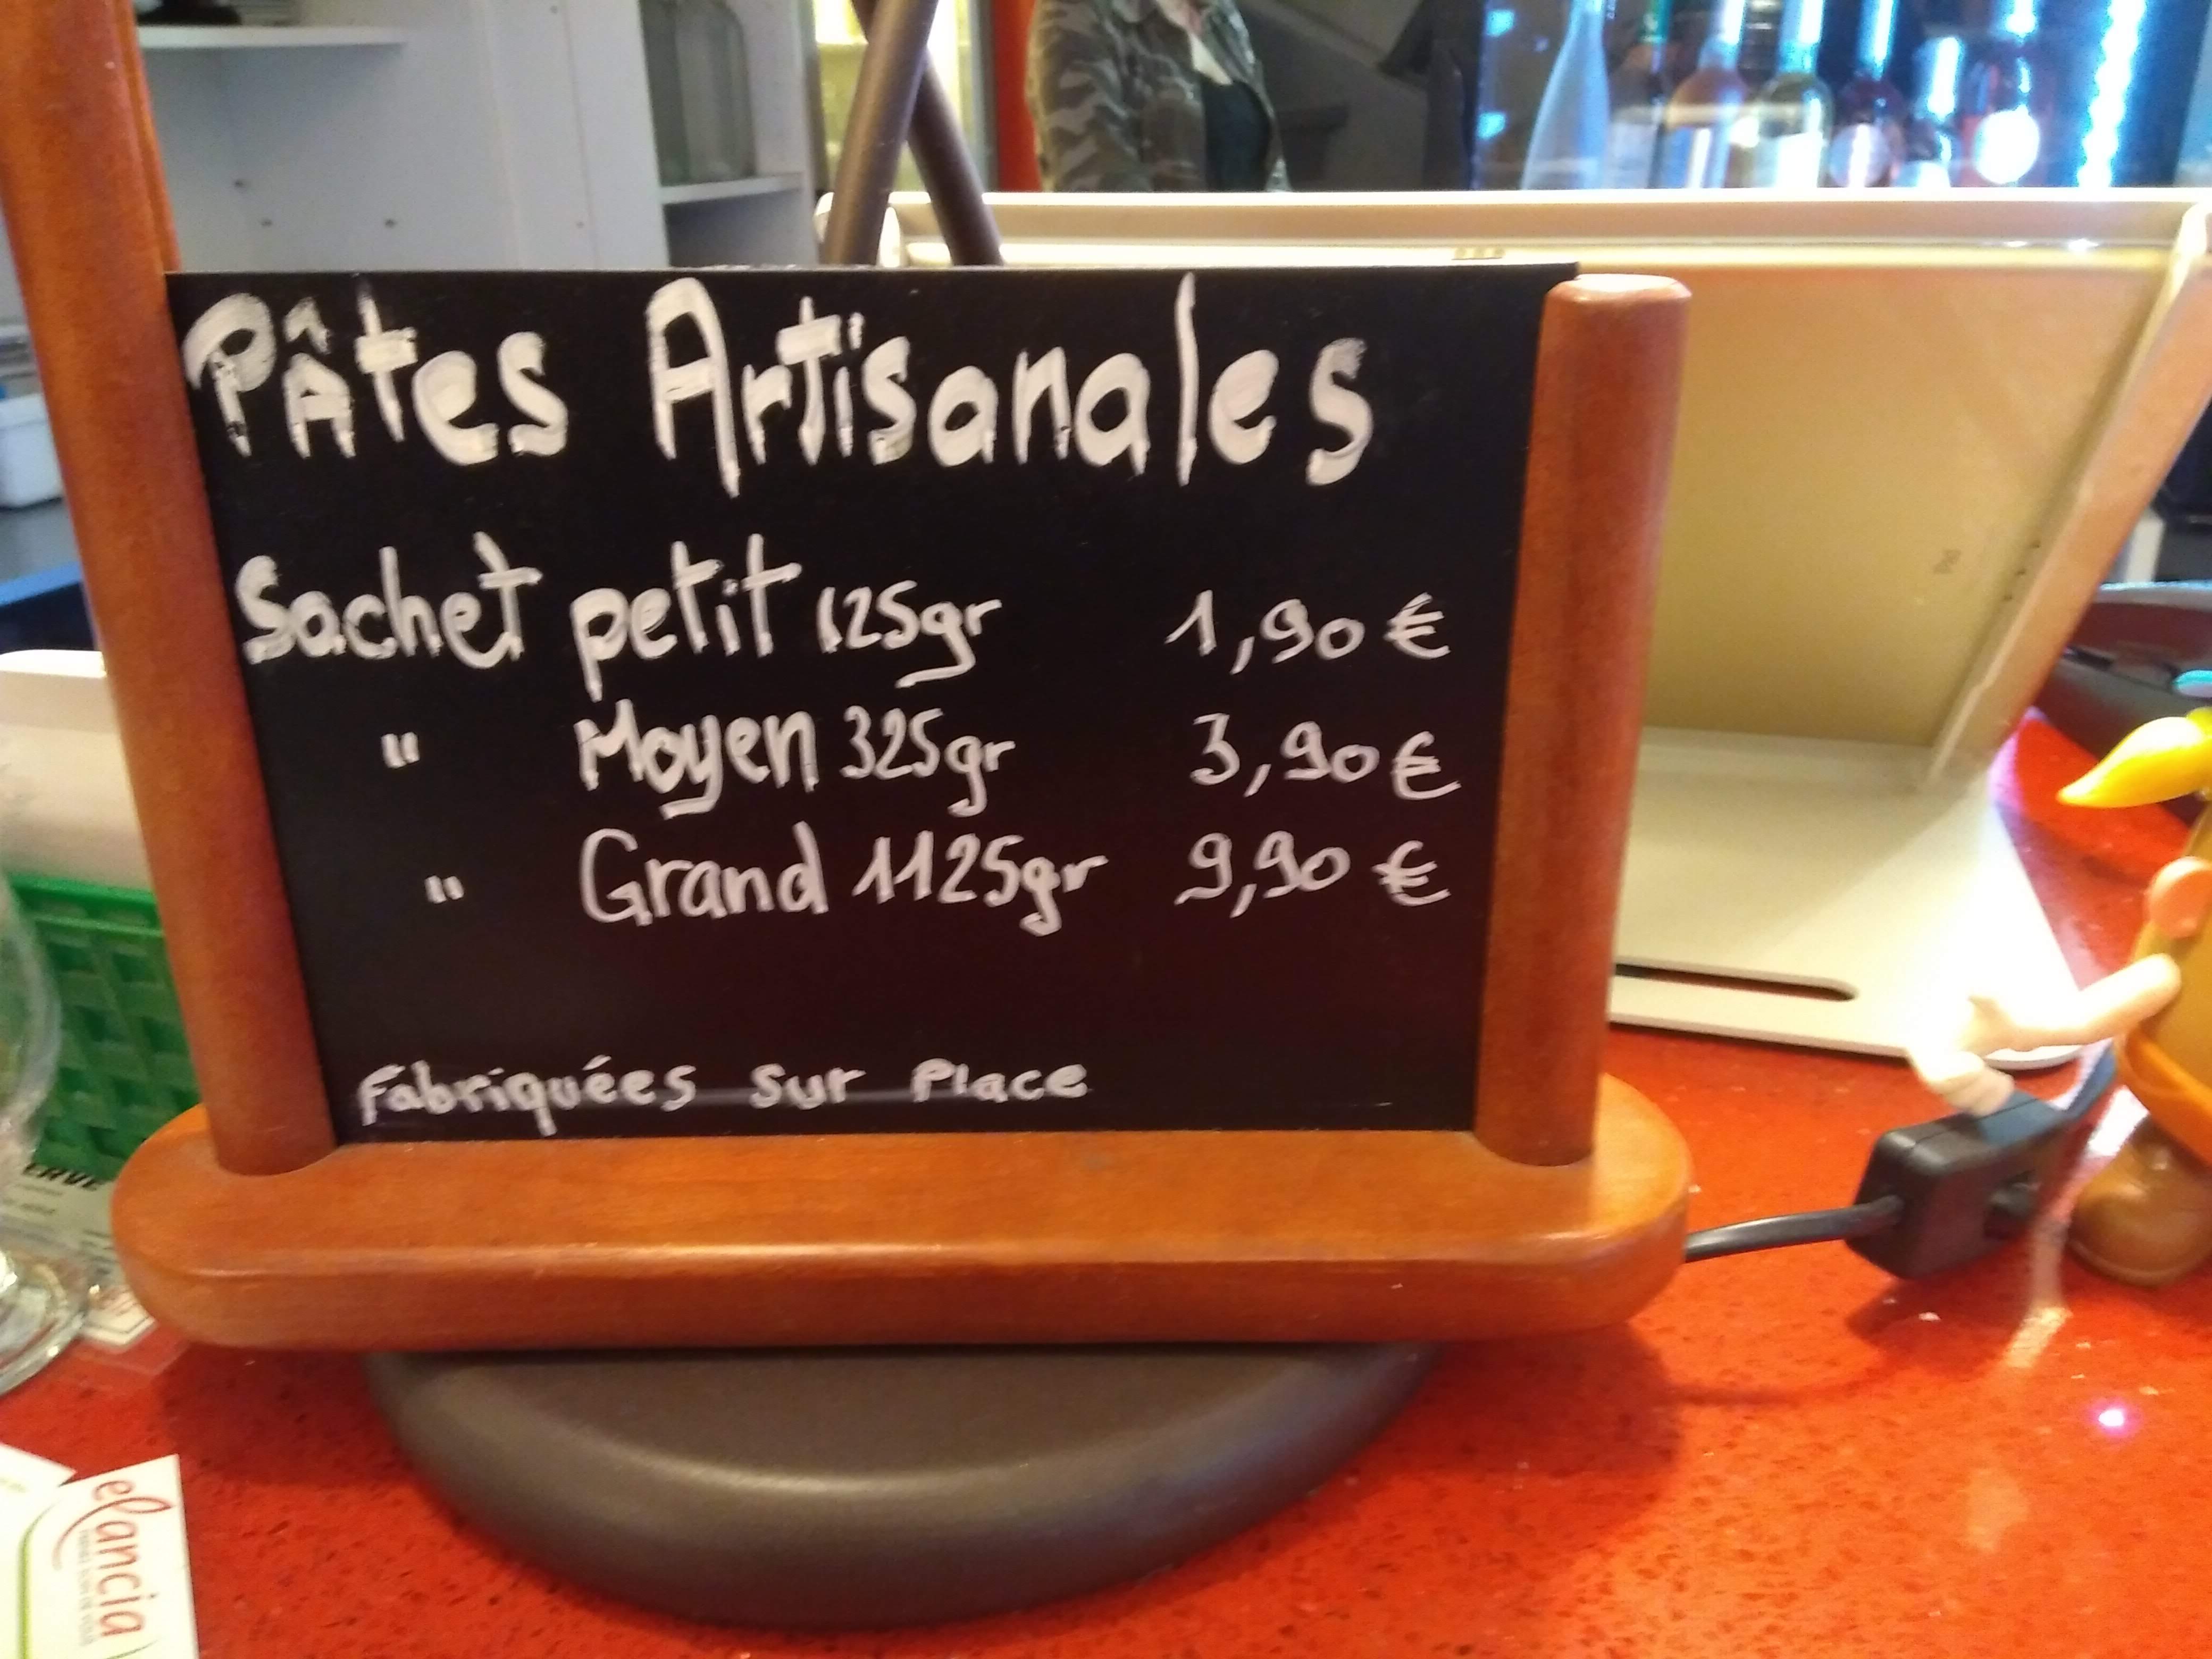 Pâtes Artisanales
Sachet petit 125gr 1,90 €
" Moyen 325gr 3,90 €
" Grand 1125gr 9,90 €
Fabriquées sur Place
ERVE
elancia